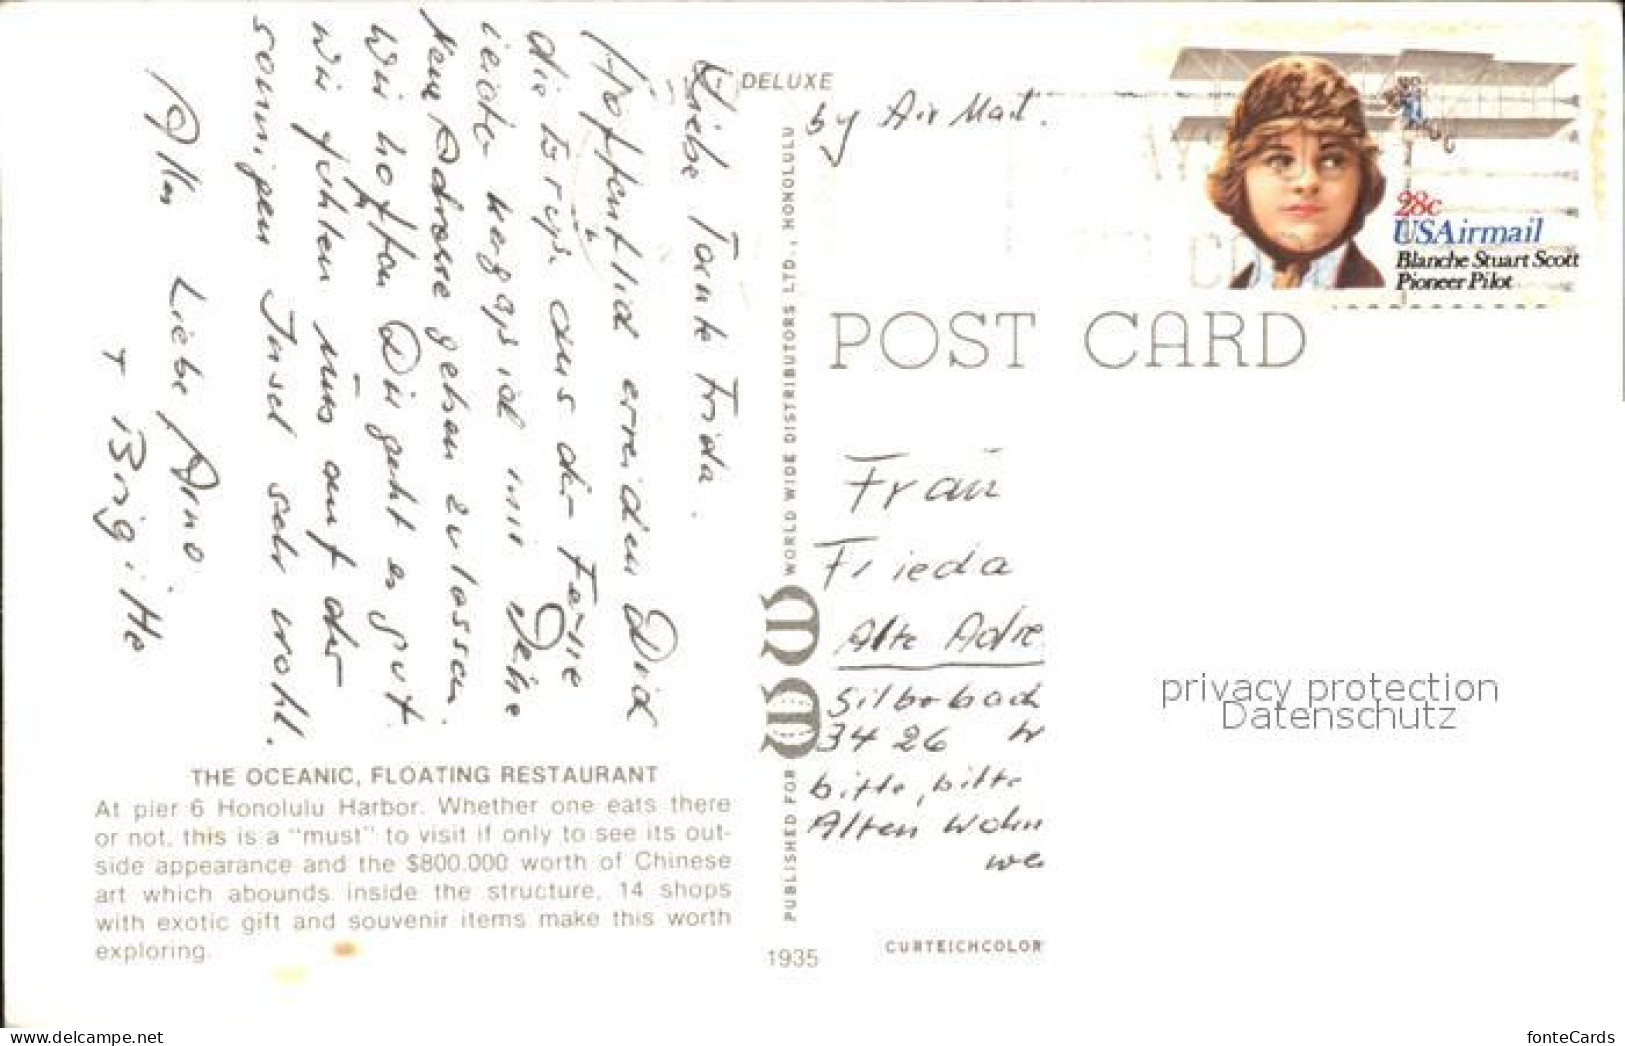 DELUXE
by Air Mail.
28c
USAirmail
Blanche Stuart Scott
Pioneer Pilot
POST CARD
Liebe Tante Frida.
Hoffentlich erreichen Dich
die Grüße aus der Ferne
leider vergaß ich mir Deine
neue Adresse geben zu lassen.
Wir hoffen Dir geht es gut
wir fühlen uns auf der
sonnigen Insel sehr wohl.
Alles Liebe Arno
+ Brigitte
Frau
Frieda
Alte Adre
Silberbach
3426 W
bitte, bitte
Alten Wohn
we
privacy protection
Datenschutz
THE OCEANIC, FLOATING RESTAURANT
At pier 6 Honolulu Harbor. Whether one eats there
or not, this is a "must" to visit if only to see its out-
side appearance and the $800.000 worth of Chinese
art which abounds inside the structure, 14 shops
with exotic gift and souvenir items make this worth
exploring.
PUBLISHED FOR WW WORLD WIDE DISTRIBUTORS LTD., HONOLULU
1935
CURTEICHCOLOR
www.delcampe.net
fonteCards